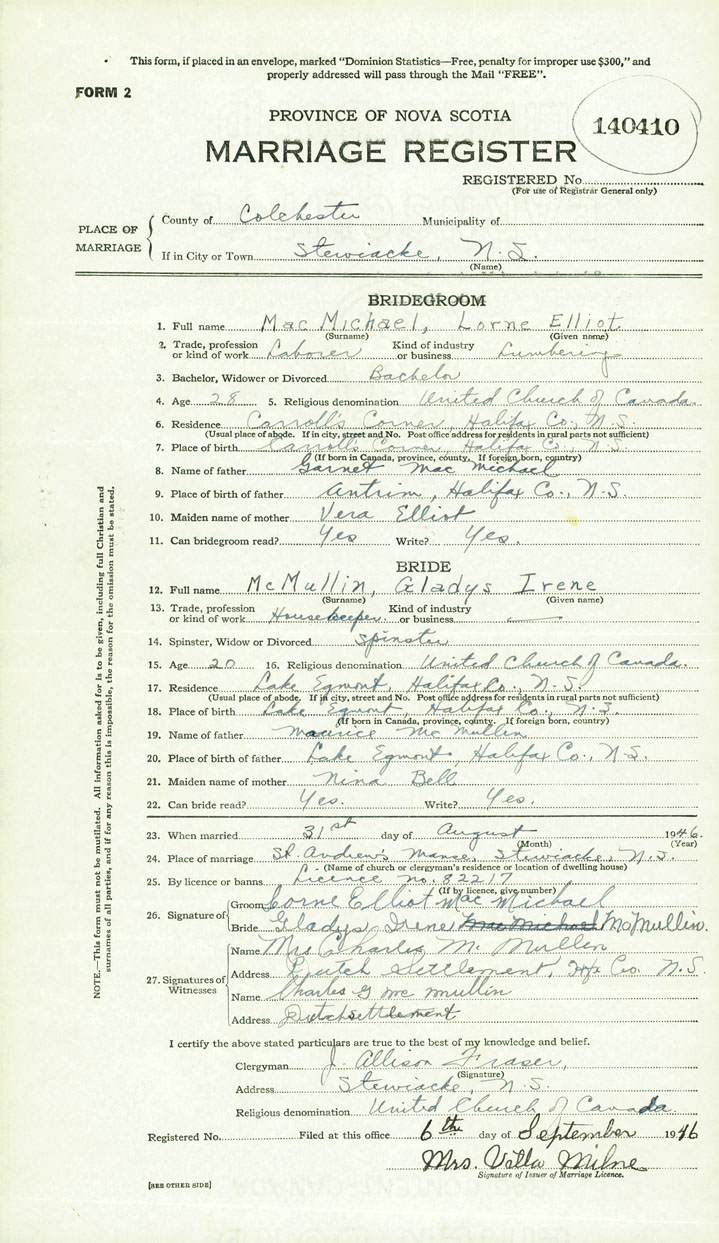 This form, if placed in an envelope, marked “Dominion Statistics—Free, penalty for improper use $300,” and
properly addressed will pass through the Mail “FREE”.
FORM 2
PROVINCE OF NOVA SCOTIA
140410
MARRIAGE REGISTER
REGISTERED No.
(For use of Registrar General only)
PLACE OF MARRIAGE
County of Colchester Municipality of
If in City or Town Stewiacke, N.S.
(Name)
BRIDEGROOM
1. Full name MacMichael, Lorne Elliot
(Surname) (Given name)
2. Trade, profession or kind of work Laborer Kind of industry or business Lumbering
3. Bachelor, Widower or Divorced Bachelor
4. Age 28 5. Religious denomination United Church of Canada.
6. Residence Carroll's Corner, Halifax Co., N.S.
(Usual place of abode. If in city, street and No. Post office address for residents in rural parts not sufficient)
7. Place of birth Carroll's Corner, Halifax Co., N.S.
(If born in Canada, province, county. If foreign born, country)
8. Name of father Garnet Mac Michael
9. Place of birth of father Antrim, Halifax Co., N.S.
10. Maiden name of mother Vera Elliot
11. Can bridegroom read? Yes Write? Yes.
BRIDE
12. Full name McMullin, Gladys Irene
(Surname) (Given name)
13. Trade, profession or kind of work Housekeeper. Kind of industry or business —
14. Spinster, Widow or Divorced Spinster
15. Age 20 16. Religious denomination United Church of Canada.
17. Residence Lake Egmont, Halifax Co., N.S.
(Usual place of abode. If in city, street and No. Post office address for residents in rural parts not sufficient)
18. Place of birth Lake Egmont, Halifax Co., N.S.
(If born in Canada, province, county. If foreign born, country)
19. Name of father Maurice Mc Mullin
20. Place of birth of father Lake Egmont, Halifax Co., N.S.
21. Maiden name of mother Nina Bell
22. Can bride read? Yes. Write? Yes.
23. When married 31st day of August 1946.
(Month) (Year)
24. Place of marriage St. Andrew's Manse, Stewiacke, N.S.
(Name of church or clergyman's residence or location of dwelling house)
25. By licence or banns Licence no. 82217
(If by licence, give number)
26. Signature of
Groom Lorne Elliot Mac Michael
Bride Gladys Irene MacMichael McMullin.
27. Signatures of Witnesses
Name Mrs Charles Mc Mullin
Address Dutch Settlement, Hfx Co. N.S.
Name Charles G Mc Mullin
Address Dutch settlement
I certify the above stated particulars are true to the best of my knowledge and belief.
Clergyman J. Allison Fraser,
(Signature)
Address Stewiacke, N.S.
Religious denomination United Church of Canada.
Registered No. Filed at this office 6th day of September 1946
Mrs. Villa Milne
Signature of Issuer of Marriage Licence.
[SEE OTHER SIDE]
NOTE.—This form must not be mutilated. All information asked for is to be given, including full Christian and
surnames of all parties, and if for any reason this is impossible, the reason for the omission must be stated.